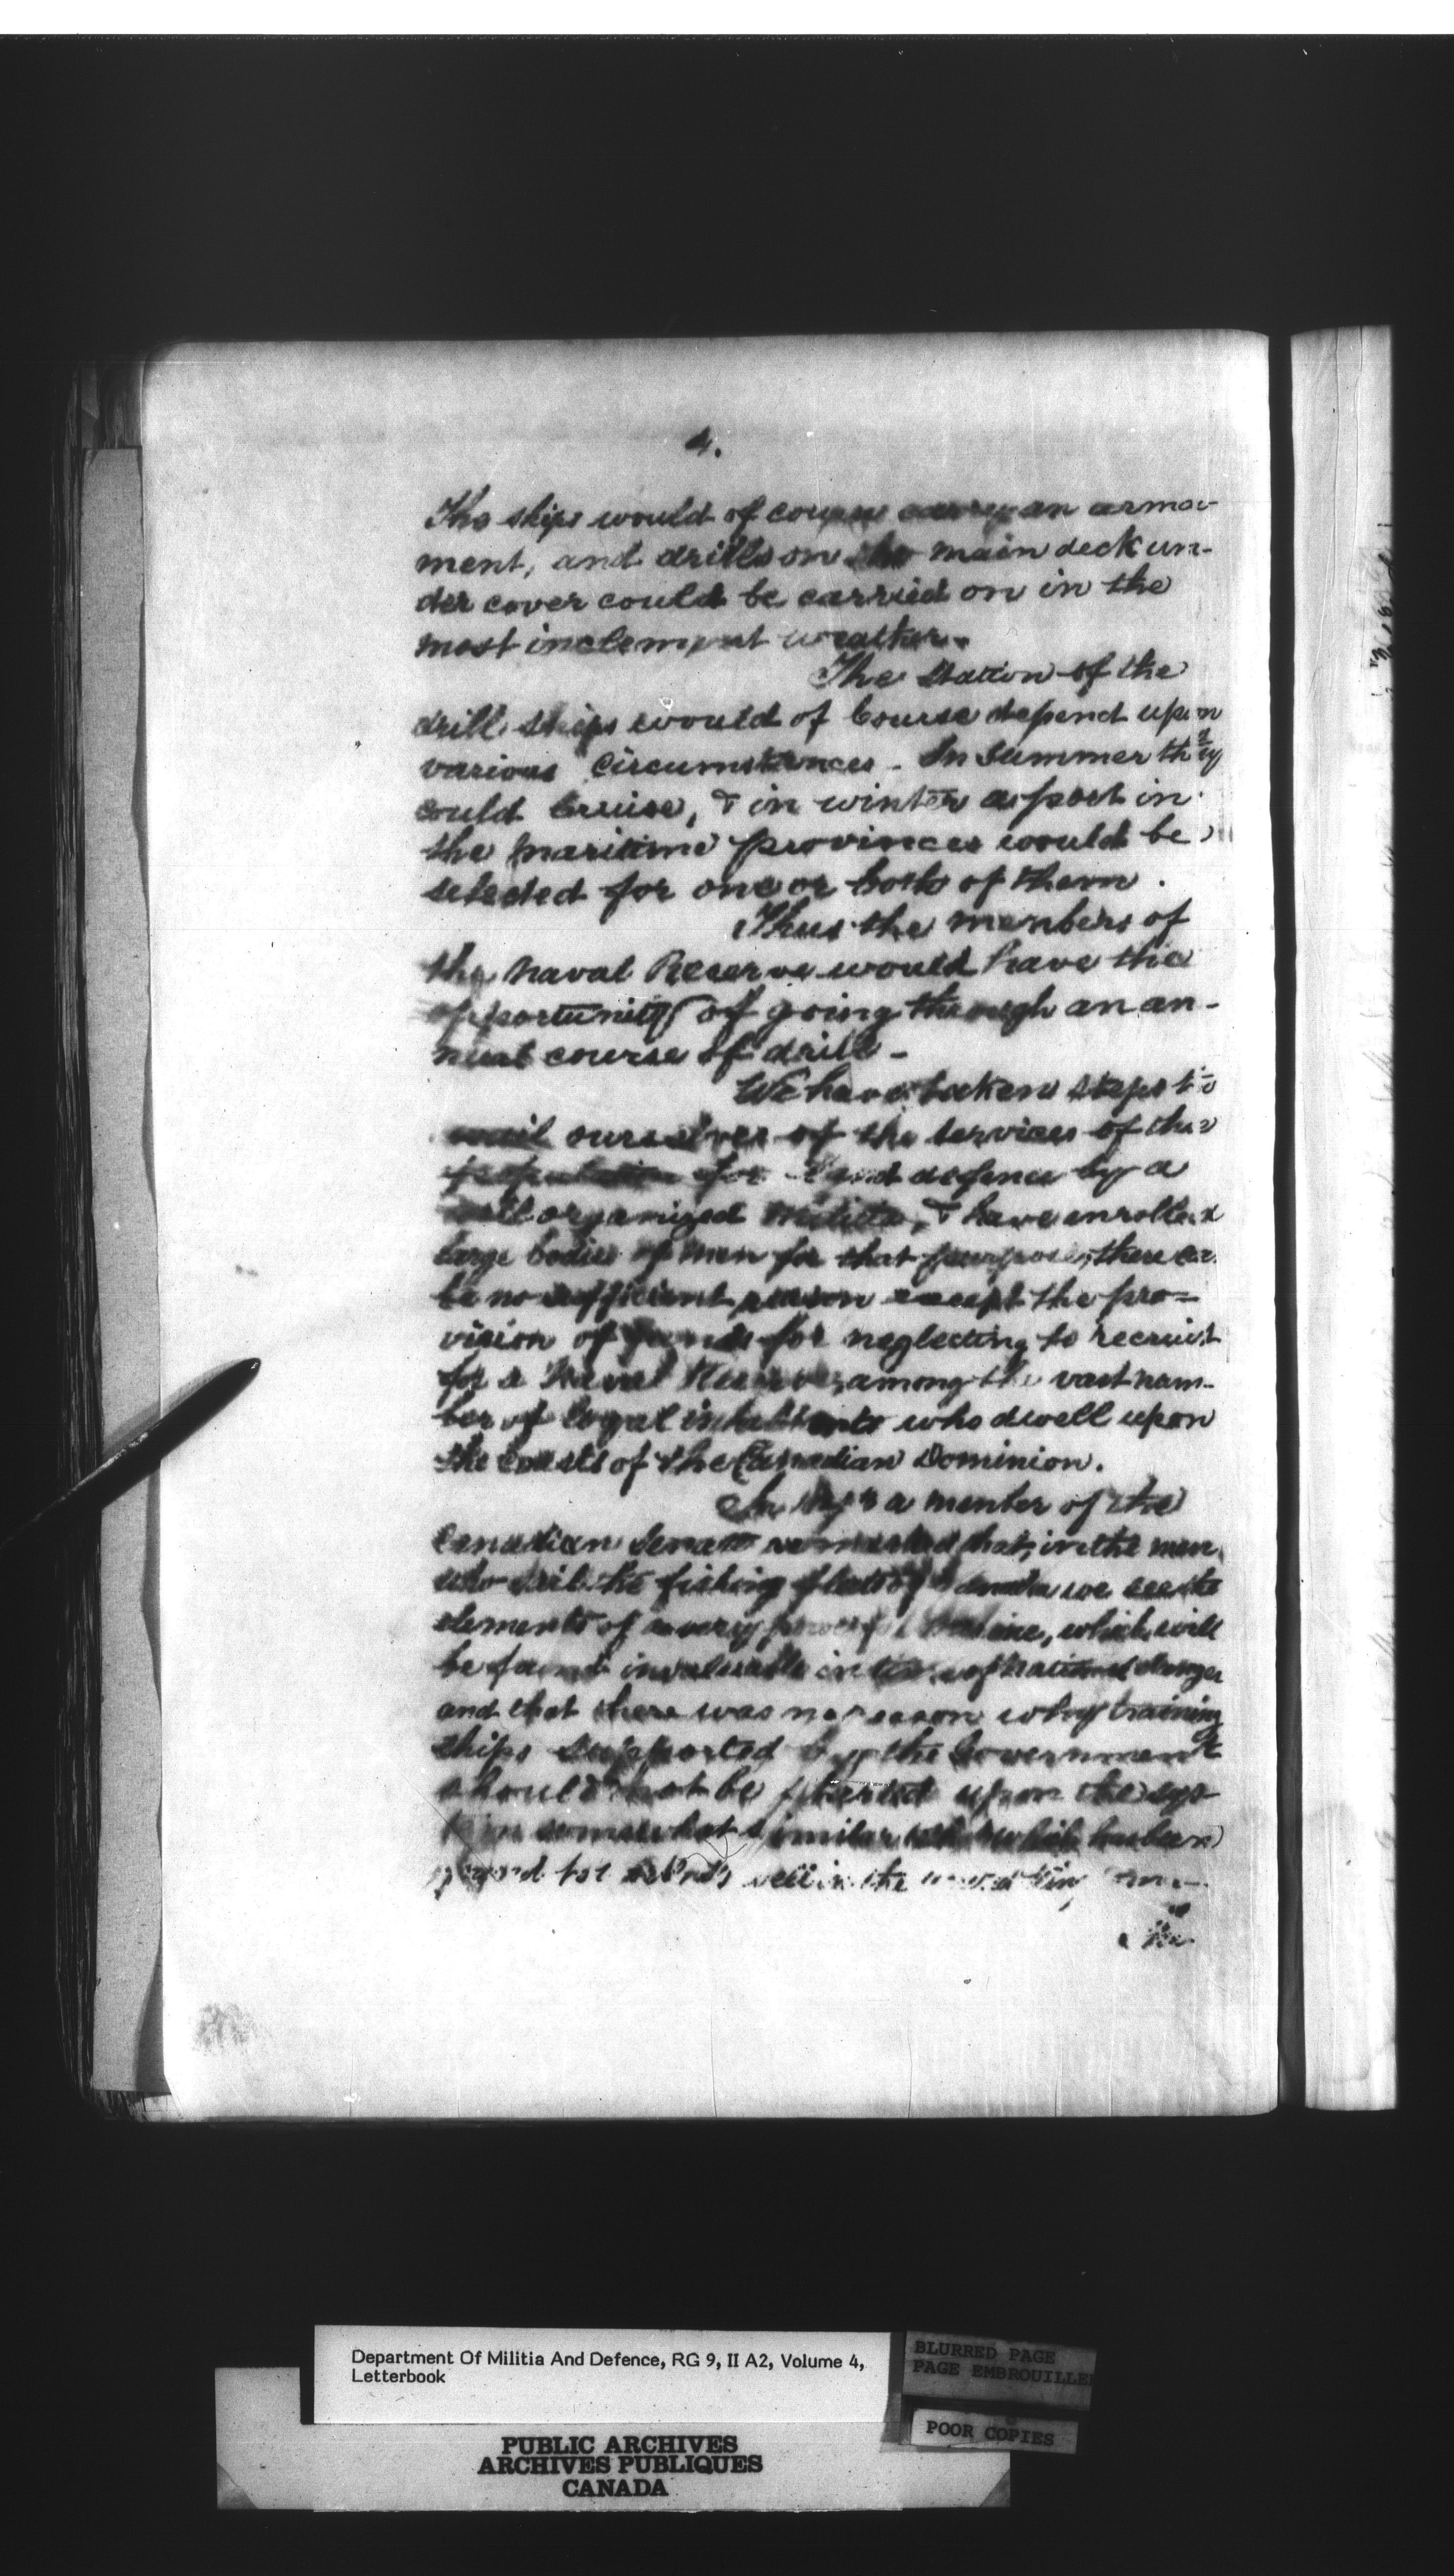 4.
The ships would of course carry an arma-
ment, and drills on the main deck un-
der cover could be carried on in the
most inclement weather.
The station of the
drill ships would of Course depend upon
various Circumstances - In Summer they
could Cruise, & in winter a port in
the maritime provinces would be
selected for one or both of them.
Thus the members of
the Naval Reserve would have the
opportunity of going through an an-
nual course of drill -
We have taken steps to
avail ourselves of the services of the
population for land defence by a
well organized Militia, & have enrolled
large bodies of men for that purpose, there can
be no sufficient reason except the pro-
vision of funds for neglecting to recruit
for a Naval Reserve, among the vast num-
ber of loyal inhabitants who dwell upon
the Coasts of the Canadian Dominion.
In a member of the
Canadian Senate remarked that, in the men,
who sail the fishing fleets of Canada we see the
elements of a very powerful Marine, which will
be found invaluable in of national danger
and that there was no reason why training
ships supported by the Government
should not be upon the sys-
tem somewhat similar which has been
found to well in the United King
The
Department Of Militia And Defence, RG 9, II A2, Volume 4,
Letterbook
BLURRED PAGE
PAGE EMBROUILLE
POOR COPIES
PUBLIC ARCHIVES
ARCHIVES PUBLIQUES
CANADA